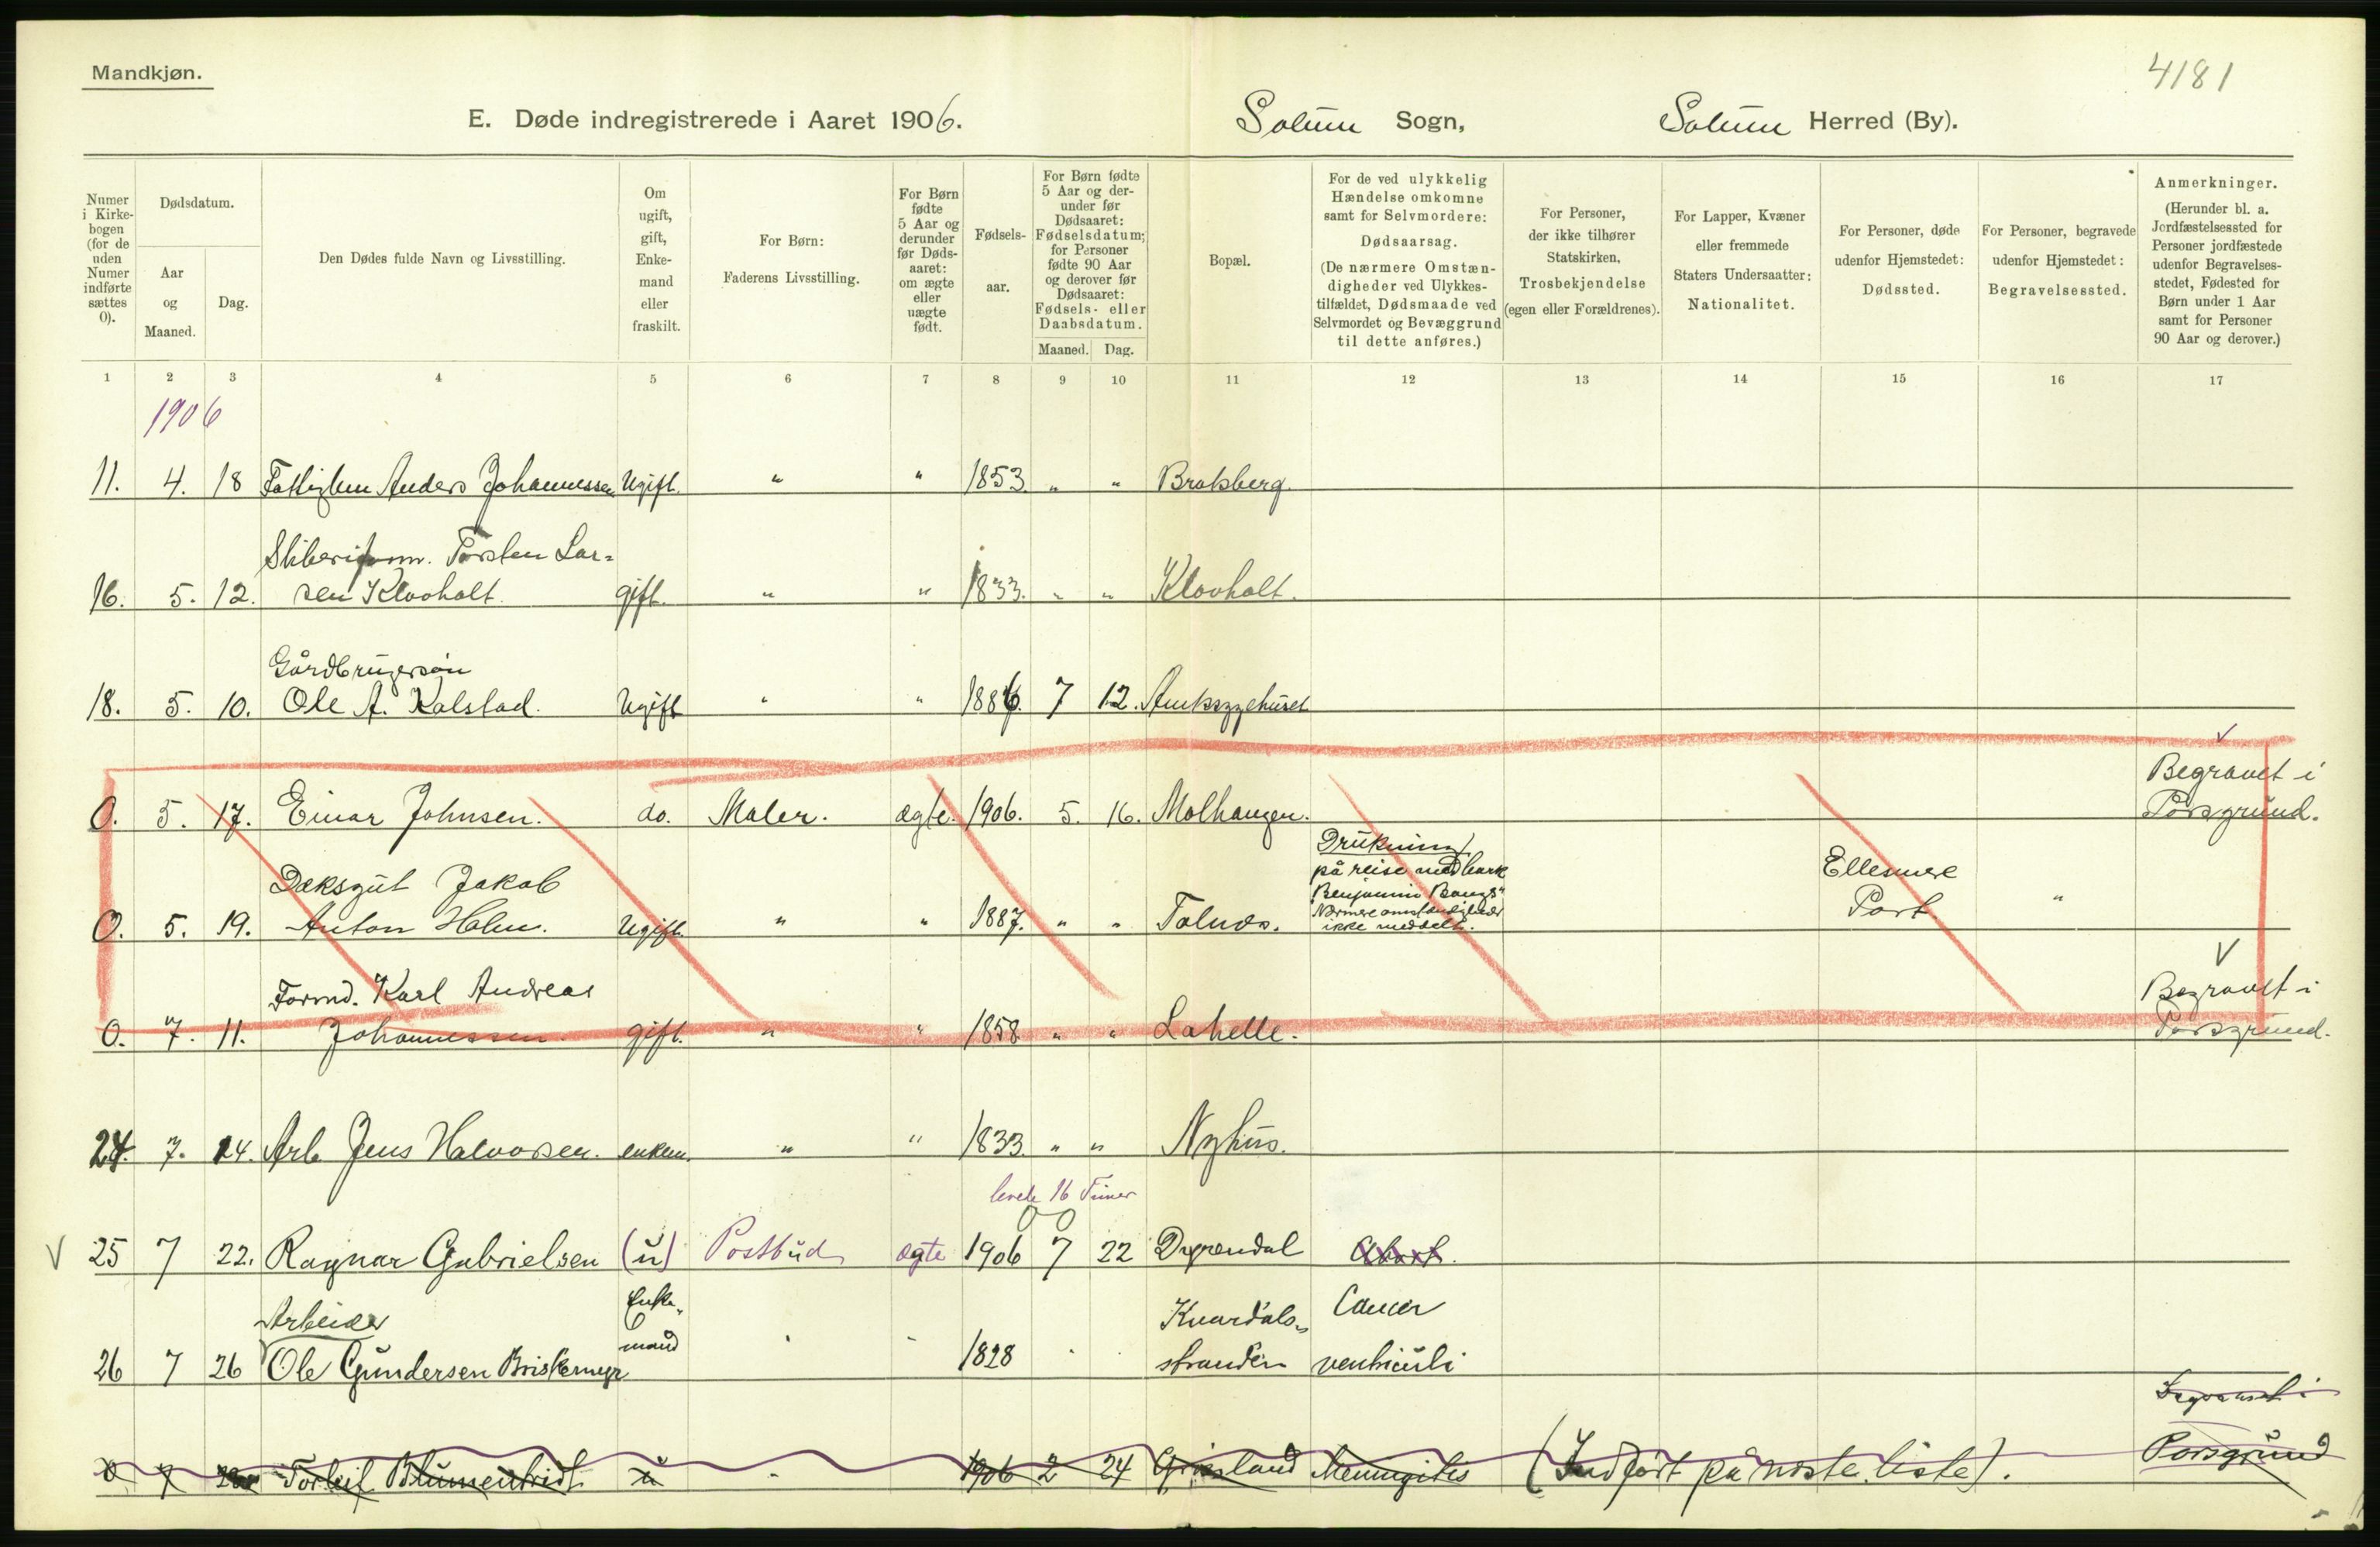 Mandkjøn.
4181
E. Døde indregistrerede i Aaret 1906.
Solum Sogn,
Solum Herred (By).
Numer i Kirkebogen (for de uden Numer indførte sættes 0).
Dødsdatum.
Aar og Maaned.
Dag.
Den Dødes fulde Navn og Livsstilling.
Om ugift, gift, Enkemand eller fraskilt.
For Børn: Faderens Livsstilling.
For Børn fødte 5 Aar og derunder før Dødsaaret: om ægte eller uægte født.
Fødselsaar.
For Børn fødte 5 Aar og derunder før Dødsaaret: Fødselsdatum; for Personer fødte 90 Aar og derover før Dødsaaret: Fødsels- eller Daabsdatum.
Maaned. Dag.
Bopæl.
For de ved ulykkelig Hændelse omkomne samt for Selvmordere: Dødsaarsag. (De nærmere Omstændigheder ved Ulykkestilfældet, Dødsmaade ved Selvmordet og Bevæggrund til dette anføres.)
For Personer, der ikke tilhører Statskirken, Trosbekjendelse (egen eller Forældrenes).
For Lapper, Kvæner eller fremmede Staters Undersaatter: Nationalitet.
For Personer, døde udenfor Hjemstedet: Dødssted.
For Personer, begravede udenfor Hjemstedet: Begravelsessted.
Anmerkninger. (Herunder bl. a. Jordfæstelsessted for Personer jordfæstede udenfor Begravelsesstedet, Fødested for Børn under 1 Aar samt for Personer 90 Aar og derover.)
1 2 3 4 5 6 7 8 9 10 11 12 13 14 15 16 17
1906
11. 4. 18 Fattiglem Anders Johannessen Ugift. " " 1853. " " Bratsberg.
Torsten Lar=
16. 5. 12. sen Klovholt. gift. " " 1833. " " Klovholt.
Gårdbrugersøn
18. 5. 10. Ole A. Kalstad. Ugift " " 1886. 7 12. Amtssygehuset
Begravet i
0. 5. 17. Einar Johnsen. do. Maler. ægte. 1906. 5. 16. Molhaugen. Porsgrund.
Dæksgut Jakob
Drukning
på reise med bark
Benjamin Bangs"
Nærmere omstændigheder
ikke meddelt.
Ellesmere
Port
0. 5. 19. Anton Holm. Ugift. " " 1887. " " Tolnæs. "
Formd. Karl Andreas
Begravet i
0. 7. 11. Johannessen. gift. " " 1858 " " Lahelle. Porsgrund.
24. 7. 14. Arb. Jens Halvorsen. enkem. " " 1833. " " Nyhus.
levede 16 Timer
V 25 7 22. Ragnar Gabrielsen (u) Postbud ægte 1906 7 22 Dyrendal
Arbeider Enke- Knardals- Cancer
26 7 26 Ole Gundersen Briskemyr mand 1828 stranden ventriculi
Begravet i
0 7 Torleif Blumenthidt u 1906 2 24 Meningitis (Indført på næste liste). Porsgrund